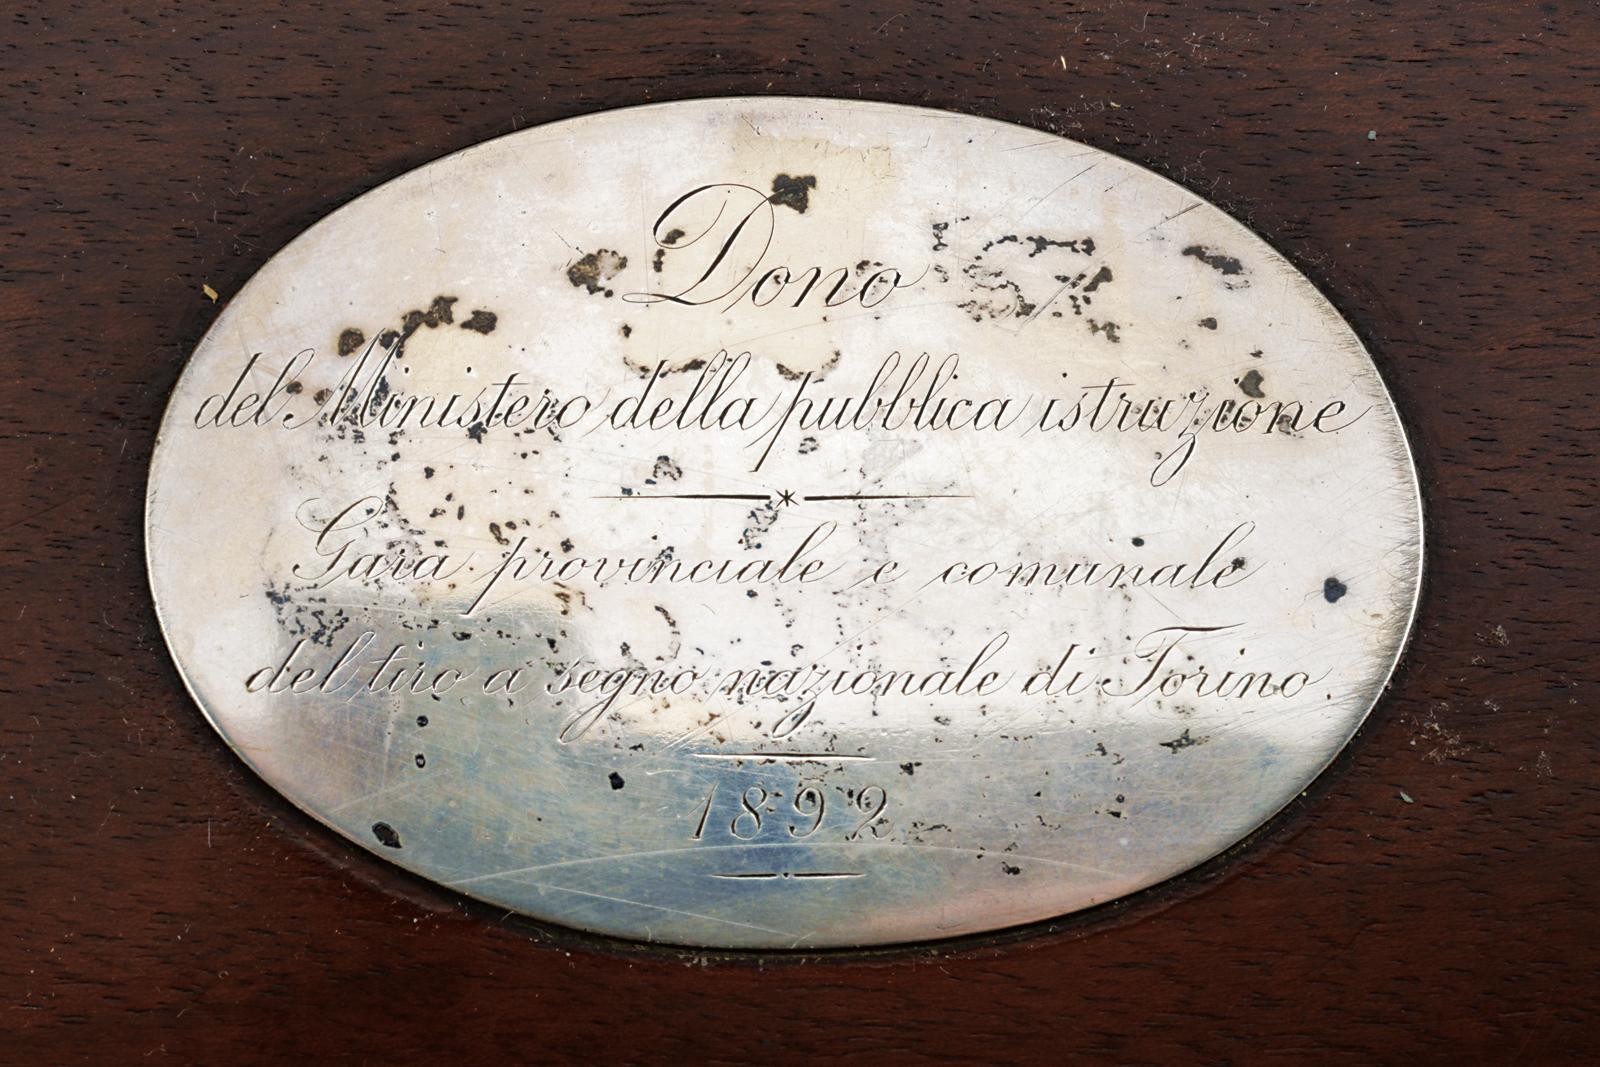 Dono
del Ministero della pubblica istruzione
Gara provinciale e comunale
del tiro a segno nazionale di Torino.
1892